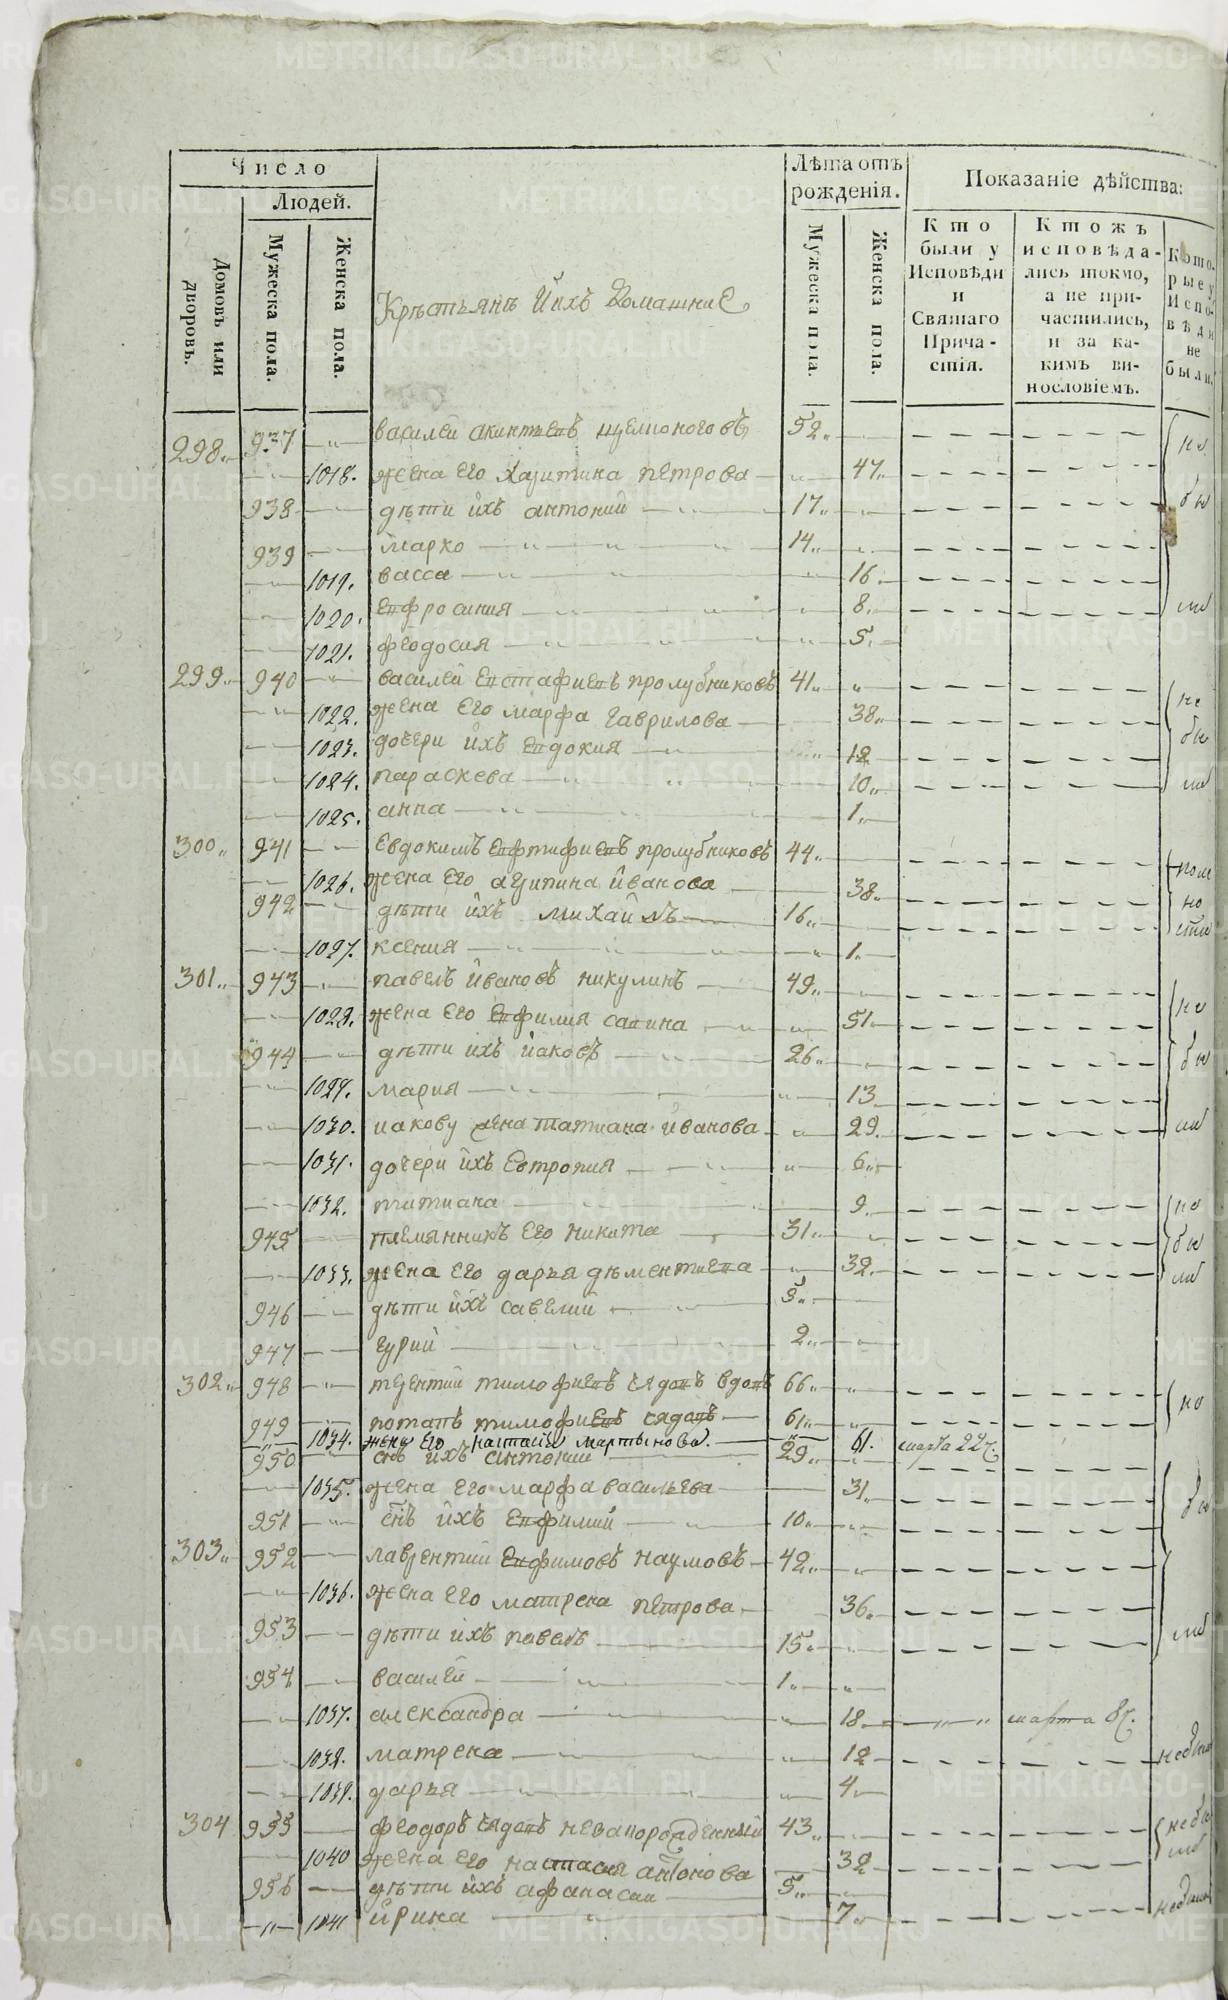 Число
Людей.
Домовъ или дворовъ.
Мужеска пола.
Женска пола.
Крѣстьянъ Йихъ Домашние
Лѣта отъ рожденія.
Мужеска пола.
Женска пола.
Показаніе дѣйства:
Кто были у Исповѣди и Святаго Причастія.
Кто жъ исповѣдались токмо, а не причастились, и за какимъ винословіемъ.
Которые у Исповѣди не были.
298 937 василей акинтиевъ 52 не
1018. жена его Харитина петрова 47 бы
938 дѣти ихъ антоний 17
939 марко 14
1019. васса 16
1020. евфросиния 8 ли
1021. феодосия 5
299 940 василей евстафиевъ пролубниковъ 41 не
1022. жена его марфа гаврилова 38 бы
1023. дочери ихъ евдокия 12
1024. параскева 10 ли
1025. анна 1
300 941 евдокимъ пролубниковъ 44
1026. жена его агрипина иванова 38
942 дѣти ихъ михайлъ 16
1027. ксения 1
301 943 павелъ ивановъ никулинъ 49 не
1028. жена его евфимия савина 51
944 дѣти ихъ иаковъ 26 бы
1029. мария 13
1030. иакову жена татиана иванова 29 ли
1031. дочери ихъ евтропия 6
1032. татиана 9 не
945 племянникъ его никита 31 бы
1033. жена его дарья дѣментиева 32 ли
946 дѣти ихъ савелий 5
947 гурий 2
302 948 терентий тимофиевъ вдовъ 66 не
949 потапъ тимофиевъ 61
1034. жена его настасія мартынова. 61. марта 22 ч.
950 снъ ихъ антоний 29
1035. жена его марфа васильева 31 бы
951 снъ ихъ евфимий 10
303 952 лаврентий евфимовъ наумовъ 42
1036. жена его матрена петрова 36
953 дѣти ихъ павелъ 15 ли
954 василей 1
1037. александра 18 марта 8 ч.
1038. матрена 12
1039. дарья 4
304 955 феодоръ 43
1040 жена его настасия антонова 32 ли
956 дѣти ихъ афанасий 5
1041 йрина 7
METRIKI.GASO-URAL.RU